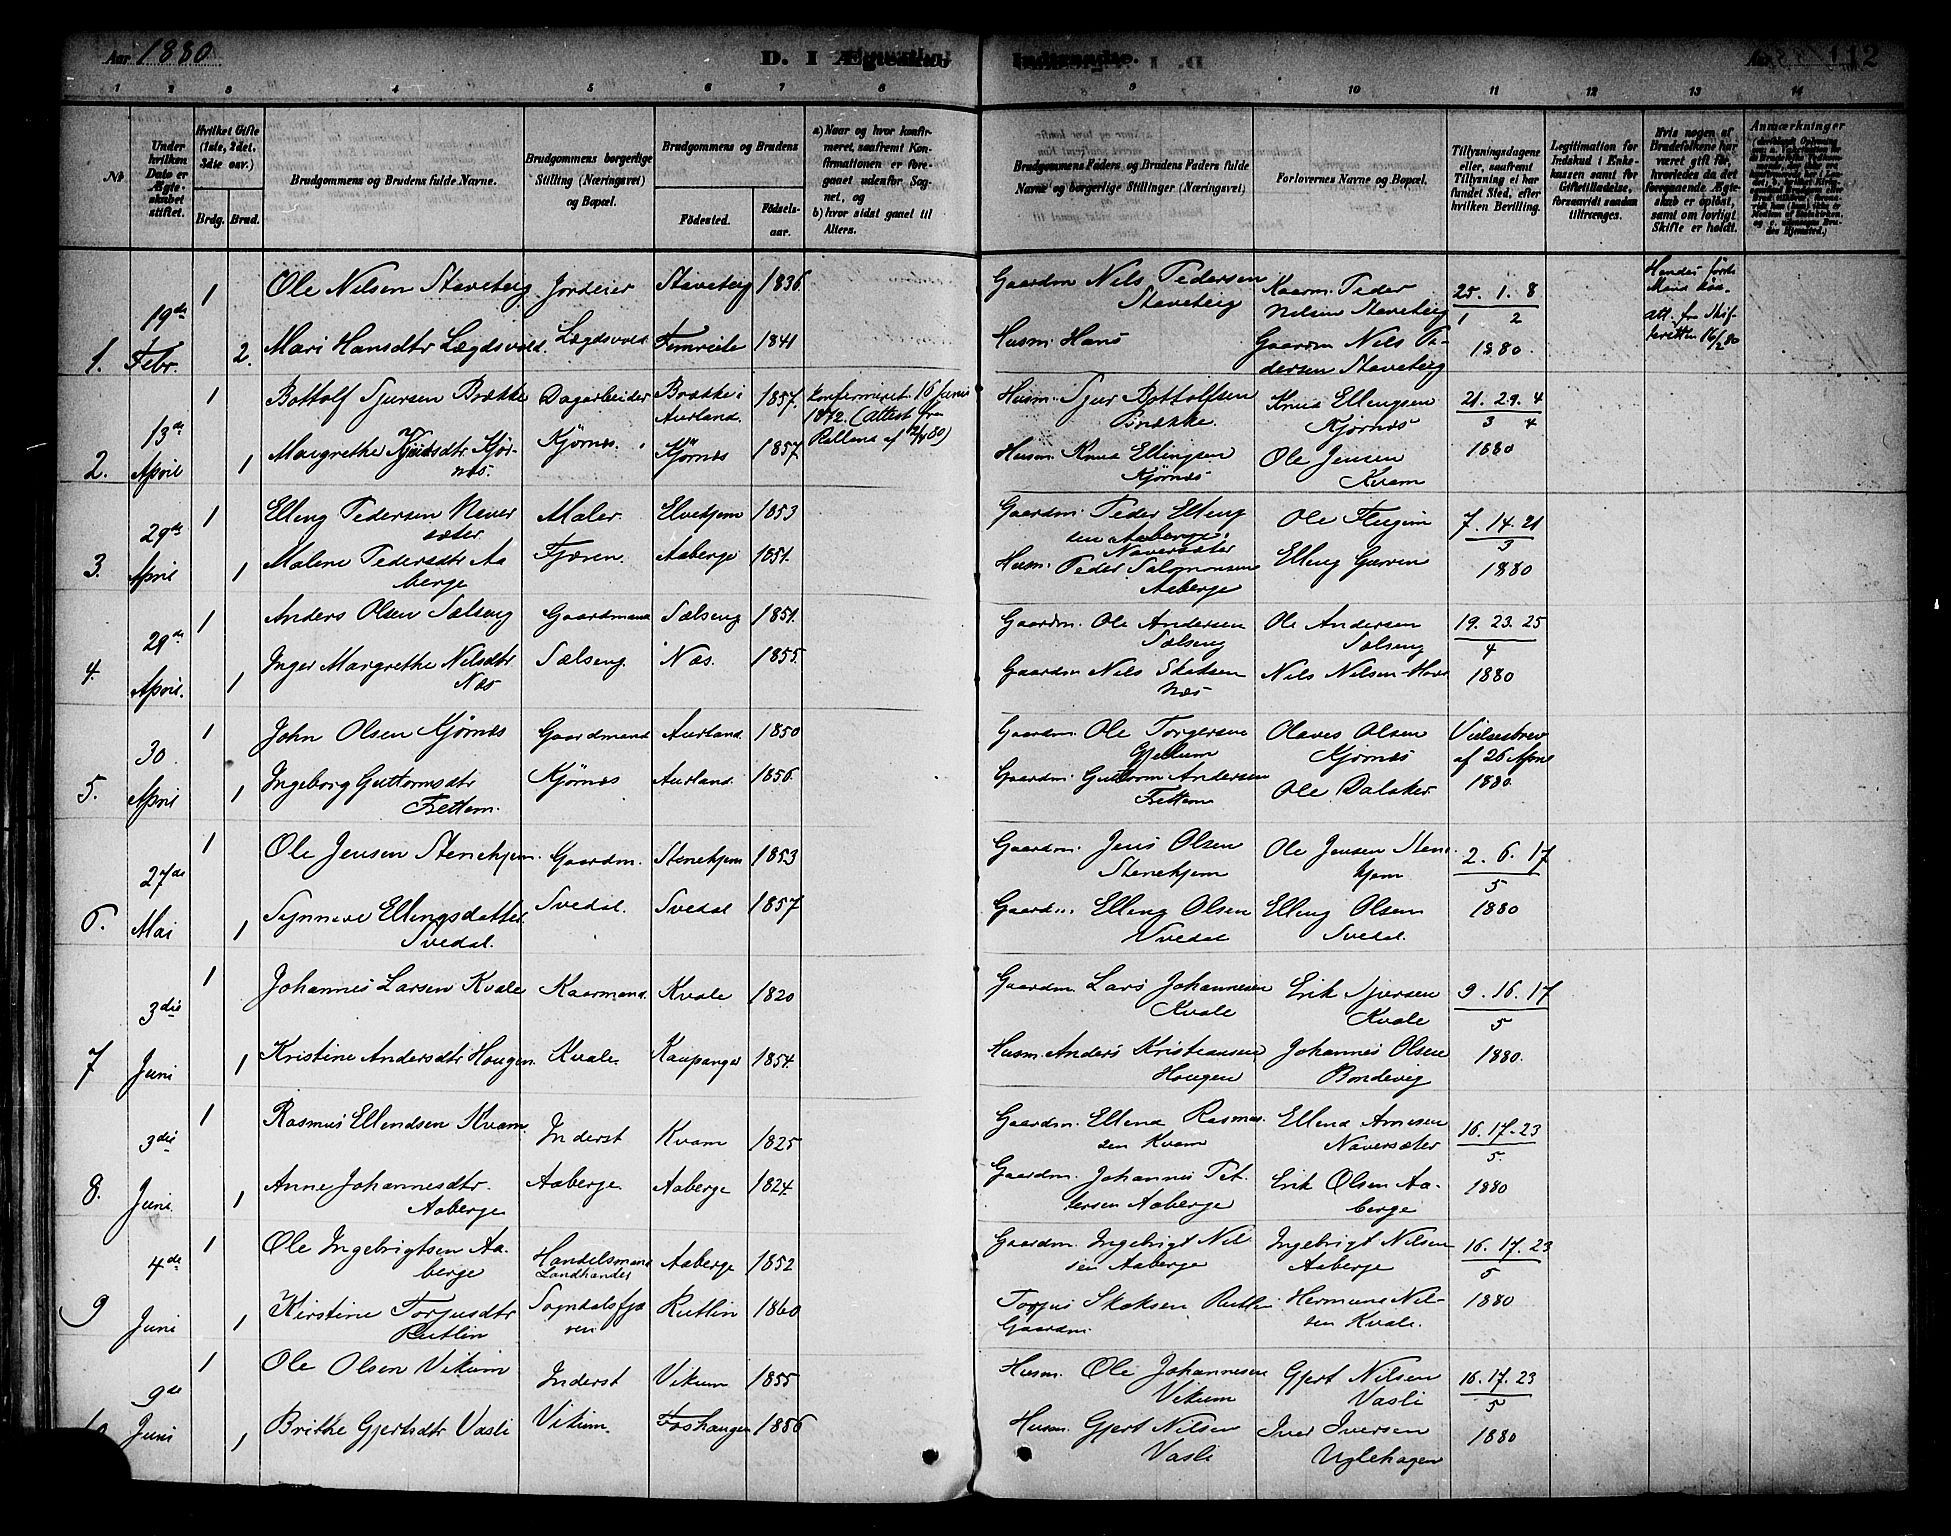 Aar 1880
D. I Ægteskab Indtraadte.
112
1 2 3 4 5 6 7 8 9 10 11 12 13 14
No
Under hvilken Dato er Ægteskabet stiftet.
Hvilket Gifte (1ste, 2det, 3die osv.)
Brdg. Brud.
Brudgommens og Brudens fulde Navne.
Brudgommens borgerlige Stilling (Næringsvei) og Bopæl.
Brudgommens og Brudens
Födested.
Födsels-aar.
a) Naar og hvor konfirmeret, saafremt Konfirmationen er foregaaet udenfor Sognet, og
b) hvor sidst gaaet til Alters.
Brudgommens Faders og Brudens Faders fulde Navne og borgerlige Stillinger (Næringsvei)
Forlovernes Navne og Bopæl.
Tillysningsdagene eller, saafremt Tillysning ei har fundet Sted, efter hvilken Bevilling.
Legitimation for Indskud i Enkekassen samt for Giftetilladelse, forsaavidt saadan tiltrænges.
Hvis nogen af Brudefolkene har været gift för, hvorledes da det foregaaende Ægteskab er oplöst, samt om lovligt Skifte er holdt.
Anmærkninger
1. 19de Febr. 1 Ole Nilsen Staveteig Jordeier Staveteig 1836 Gaardm Nils Pedersen Staveteig Kaarm. Peder Nilsen Staveteig 25. 1. 8 / 1 2 1880
Hendes første Mand død. att. fra Skifteretten 16/2 80
2. Mari Hansdtr Lægdsvold. Lægdsvold. Fimreite 1841 Husm. Hans Gaardm Nils Pedersen Staveteig
2. 13de April 1 Bottolf Sjursen Brække Dagarbeider Brække i Aurland. 1857. Konfirmeret 16 Juni 1872. (Attest fra Husm. Sjur Bottolfsen Brække Knud Ellingsen Kjørnæs 21. 29. 4 / 3 4 1880
1 Margrethe Knudsdtr Kjørnæs. Kjørnæs. Kjørnæs 1857 Husm. Knud Ellingsen Kjørnæs Ole Jensen Kvam
3. 29de April 1 Elling Pedersen Naversæter Maler Elvekjem 1853 Gaardm. Peder Ellingsen Aaberge, Naversæter Ole Flugim 7. 14. 21 / 3 1880
1 Malene Pedersdtr Aaberge Fjæren. Aaberge 1851. Husm. Peder Salomonsen Aaberge Elling Gurvin
4. 29de April. 1 Anders Olsen Sælseng Gaardmand Sælseng 1851. Gaardm. Ole Andersen Sælseng Ole Andersen Sælseng 19. 23. 25 / 4 1880
1 Inger Margrethe Nilsdtr Næs Sælseng. Næs. 1855. Gaardm Nils Skaksen Næs Nils Nilsen Hove
5. 30 April 1 John Olsen Kjørnæs Gaardmand Aurland. 1850 Gaardm. Ole Torgersen Gjellum Olaves Olsen Kjørnæs Vielsesbrev af 26 April 1880.
1 Ingeborg Guttormsdtr Frettem. Kjørnæs Aurland. 1856. Gaardm. Guttorm Andersen Frettem Ole Dalaker
6. 27de Mai 1 Ole Jensen Stenehjem. Gaardm. Stenehjem 1853 Gaardm. Jens Olsen Stenehjem Ole Jensen Stenehjem 2. 6. 17 / 5 1880
1 Synneve Ellingsdatter Svedal. Svedal. Svedal 1857 Gaardm. Elling Olsen Svedal Elling Olsen Svedal.
7 3die Juni 1 Johannes Larsen Kvale Kaarmand. Kvale 1820 Gaardm. Lars Johannesen Kvale Erik Sjursen Kvale 9. 16. 17 / 5 1880.
1 Kristine Andersdtr Hougen. Kvale. Kaupanger 1854. Husm. Anders Kristiansen Hougen Johannes Olsen Bondevig
8. 3die Juni 1 Rasmus Ellendsen Kvam. Inderst Kvam 1825 Gaardm. Ellend Rasmussen Kvam Ellend Arnesen Naversæter 16. 17. 23 / 5. 1880
1 Anne Johannesdtr. Aaberge Aaberge. Aaberge 1824. Gaardm. Johannes Pettersen Aaberge Erik Olsen Aaberge
9 4de Juni 1 Ole Ingebrigtsen Aaberge Handelsmand Landhandler Aaberge 1852 Gaardm. Ingebrigt Nilsen Aaberge Ingebrigt Nilsen Aaberge 16. 17. 23 / 5 1880
1 Kirstine Torjusdtr Rutlin Sogndalsfjæren Rutlin 1860 Torjus Skaksen Rutlin Gaardm. Hermund Nilsen Kvale.
10 9de Juni 1 Ole Olsen Vikum Inderst Vikum 1855 Husm. Ole Johannesen Vikum Gjert Nilsen Vasli 16. 17. 23 / 5 1880
1 Brithe Gjertsdtr Vasli Vikum. Foshaugen 1856 Husm. Gjert Nilsen Vasli Iver Iversen Uglehagen